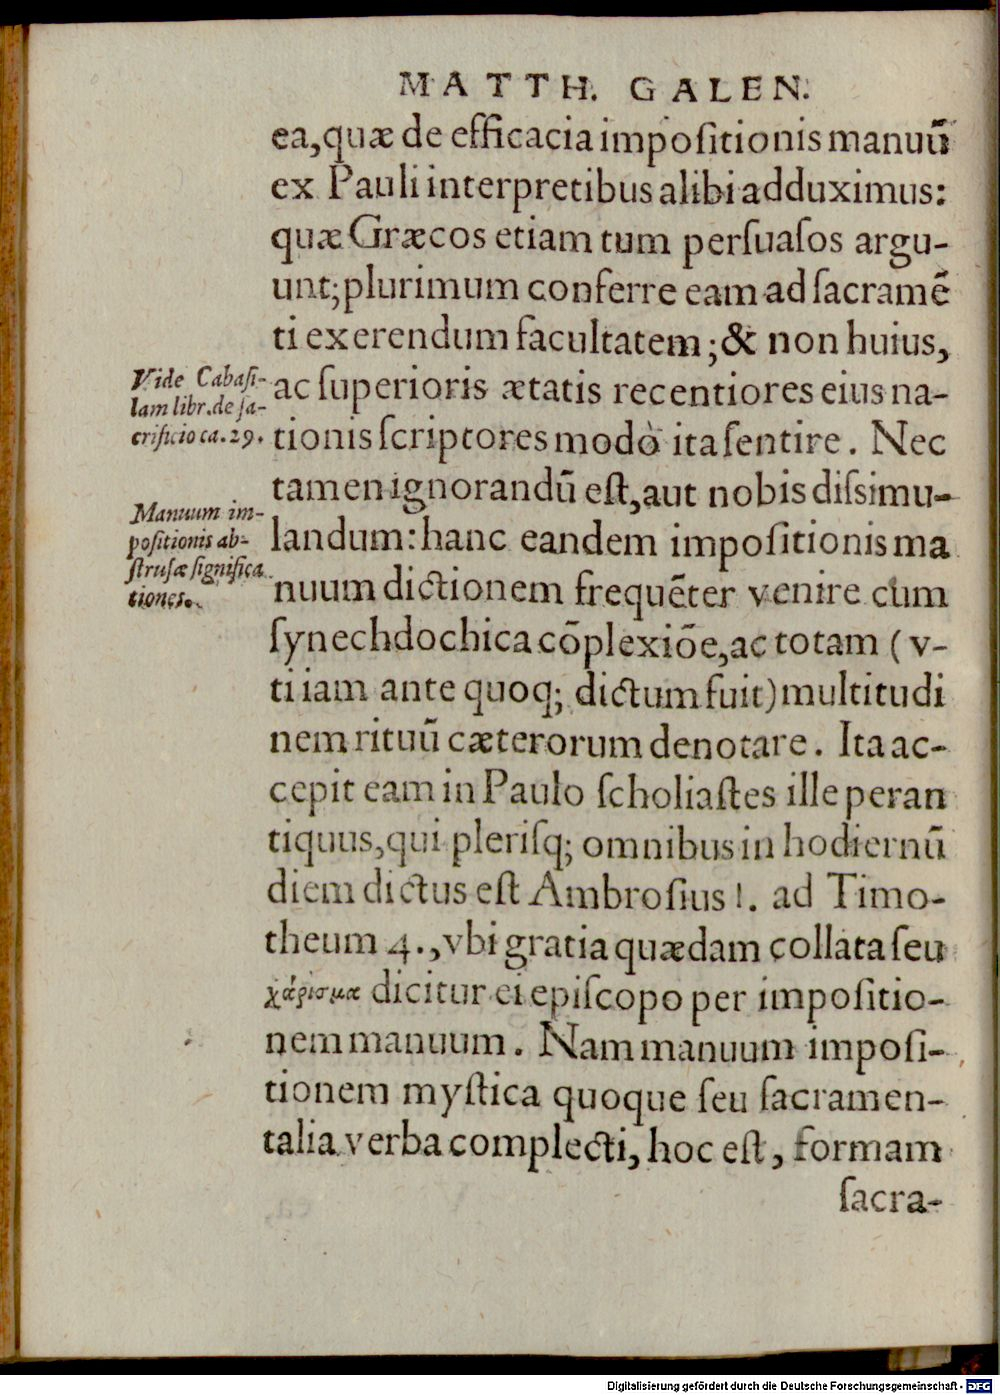 MATTH. GALEN.
ea,quæ de efficacia impoſitionis manuū
ex Pauli interpretibus alibi adduximus:
quæ Græcos etiam tum perſuaſos argu-
unt;plurimum conferre eam ad ſacramē
ti exerendum facultatem;& non huius,
ac ſuperioris ætatis recentiores eius na-
tionis ſcriptores modò ita ſentire. Nec
tamen ignorandū eſt,aut nobis diſsimu-
landum:hanc eandem impoſitionis ma
nuum dictionem frequēter venire cum
ſynechdochica cōplexiōe,ac totam (v-
ti iam ante quoq; dictum fuit) multitudi
nem rituū cæterorum denotare. Ita ac-
cepit eam in Paulo ſcholiaſtes ille peran
tiquus,qui pleriſq; omnibus in hodiernū
diem dictus eſt Ambroſius 1. ad Timo-
theum 4.,vbi gratia quædam collata ſeu
χάρισμα dicitur ei epiſcopo per impoſitio-
nem manuum. Nam manuum impoſi-
tionem myſtica quoque ſeu ſacramen-
talia verba complecti, hoc eſt, formam
ſacra-
Vide Cabaſi-
lam libr.de ſa-
crificio ca.29.
Manuum im-
poſitionis ab-
ſtruſæ ſignifica
tiones.
Digitalisierung gefördert durch die Deutsche Forschungsgemeinschaft - DFG